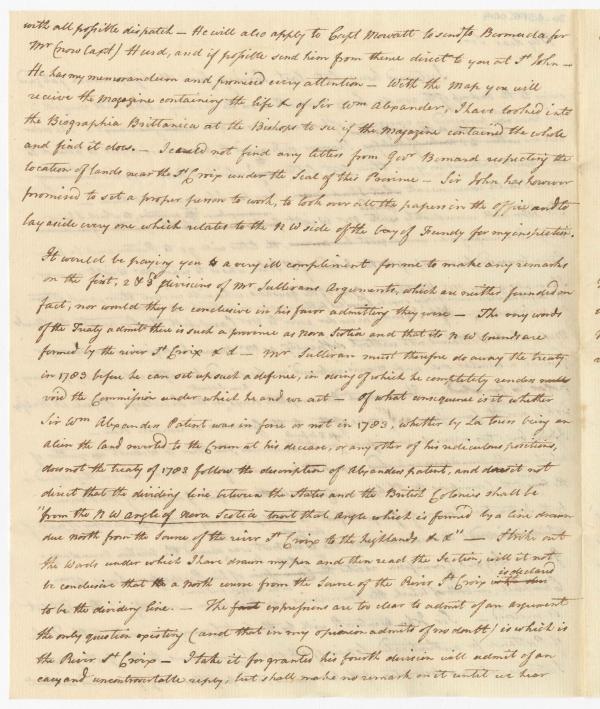 with all possible dispatch — He will also apply to Capt Mowatt to send to Bermuda for
Mr (now Capt) Hurd, and if possible send him from thence direct to you at St John —
He has my memorandum and promised every attention — With the Map you will
receive the Magazine containing the life & of Sir Wm Alexander, I have looked into
the Biographia Brittanica at the Bishops to see if the Magazine contained the whole
and find it does. — I could not find any letters from Govr Bernard respecting the
location of lands near the St Croix under the Seal of this Province — Sir John has however
promised to set a proper person to work, to look over all the papers in the office and to
lay aside every one which relates to the N W side of the bay of Fundy for my inspection.
It would be paying you a very ill compliment for me to make any remarks
on the first, 2 & 3d divisions of Mr Sullivans Arguments, which are neither founded in
fact, nor would they be conclusive in his favor admitting they were — The very words
of the Treaty admit there is such a province as Nova Scotia and that its N W bounds are
formed by the river St Croix & & — Mr Sullivan must therefore do away the treaty
in 1783 before he can set up such a defence, in doing of which he completely renders null
void the Commission under which he and we act — Of what consequence is it whether
Sir Wm Alexanders Patent was in force or not in 1783, whether by La tours being an
alien the land reverted to the Crown at his decease, or any other of his ridiculous positions,
does not the treaty of 1783 follow the description of Alexanders patent, and does it not
direct that the dividing line between the States and the British Colonies shall be
"from the N W angle of Nova Scotia to wit that angle which is formed by a line drawn
due north from the Source of the river St Croix to the highlands & &" — Strike out
the Words under which I have drawn my pen and then read the Section, will it not
be conclusive that a North course from the Source of the River St Croix is declared
to be the dividing line. — The expressions are too clear to admit of an argument
the only question existing (and that in my opinion admits of no doubt) is which is
the River St Croix — I take it for granted his fourth division will admit of an
easy and uncontrovertable reply, but shall make no remark on it until we hear